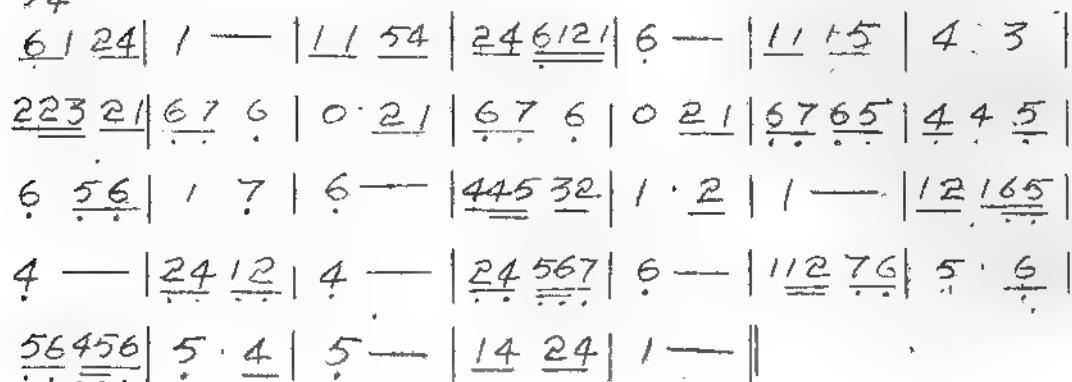 6 1 24 | 1 — | 11 54 | 24 6121 | 6 — | 11 15 | 4 . 3 |
223 21 | 67 6 | 0 · 21 | 67 6 | 0 21 | 67 65 | 4 4 5 |
6 56 | 1 7 | 6 — | 445 32 | 1 · 2 | 1 — | 12 165 |
4 — | 24 12 | 4 — | 24 567 | 6 — | 112 76 | 5 · 6 |
56 456 | 5 · 4 | 5 — | 14 24 | 1 — ||